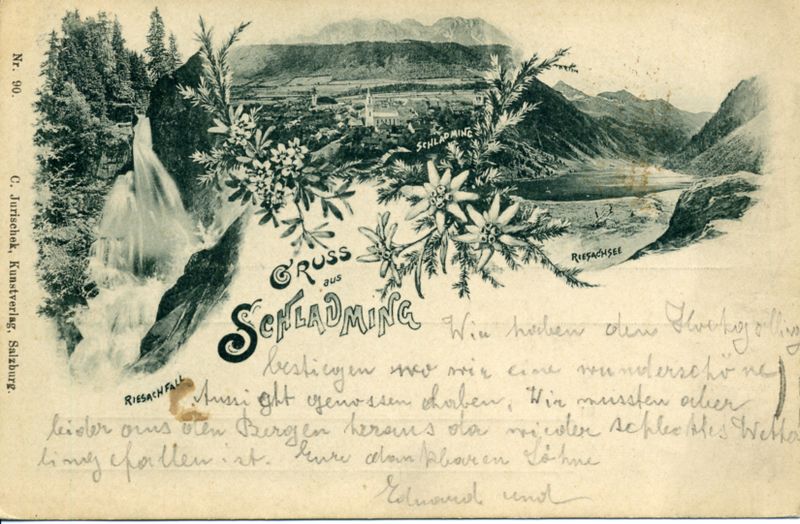 Nr. 90. C. Jurischek, Kunstverlag, Salzburg.
SCHLADMING
RIESACHSEE
RIESACHFALL
GRUSS
aus
SCHLADMING
Wir haben den Hochgolling
bestiegen wo wir eine wunderschöne
Aussicht genossen haben, Wir mussten aber
leider aus den Bergen heraus da wieder schlechtes Wetter
eingefallen ist. Eure dankbaren Söhne
Eduard und